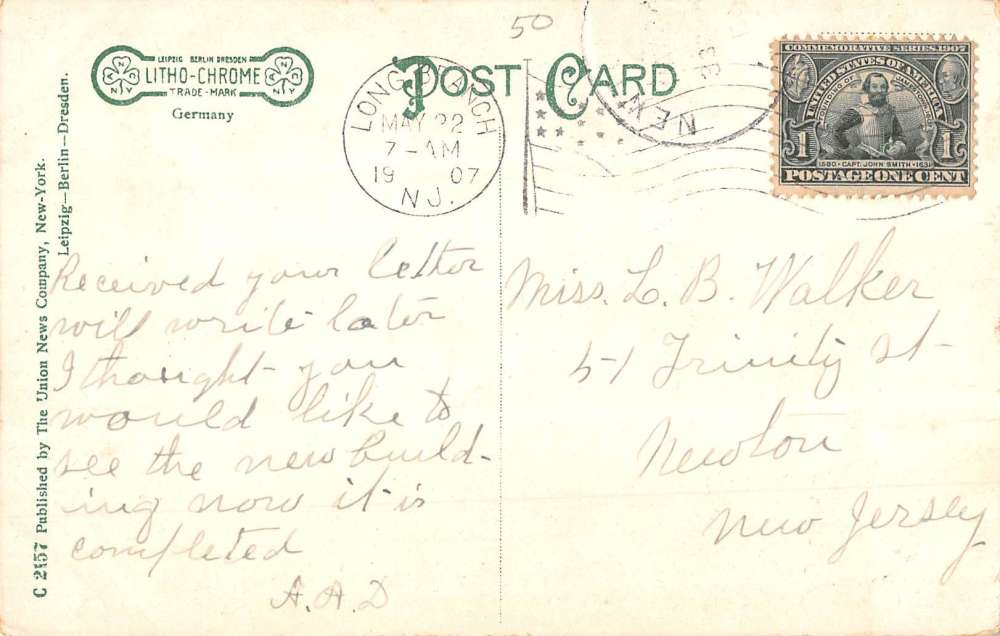 50
LEIPZIG BERLIN DRESDEN
LITHO-CHROME
TRADE-MARK
ANC
NY
ANC
NY
Germany
POST CARD
LONG BRANCH
MAY 22
7-AM
19 07
N.J.
NEW
COMMEMORATIVE SERIES 1907
UNITED STATES OF AMERICA
FOUNDING OF JAMESTOWN 1607
1580 · CAPT. JOHN SMITH · 1631
1 1
POSTAGE ONE CENT
C 2157 Published by The Union News Company, New-York.
Leipzig—Berlin—Dresden.
Received your letter
will write later
I thought you
would like to
see the new build-
ing now it is
completed
A.A.D
Miss. L. B. Walker
51 Trinity st
Newton
New Jersey